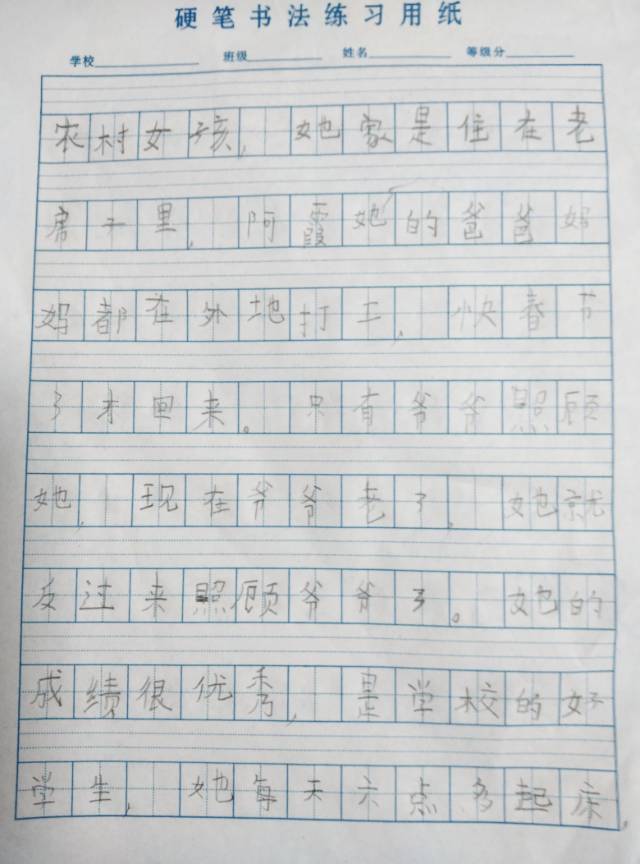 硬笔书法练习用纸
学校 班级 姓名 等级分
农村女孩,她家是住在老
房子里,阿霞她的爸爸妈
妈都在外地打工,快春节
了才回来。只有爷爷照顾
她,现在爷爷老了,她就
反过来照顾爷爷了。她的
成绩很优秀,是学校的好
学生,她每天六点多起床